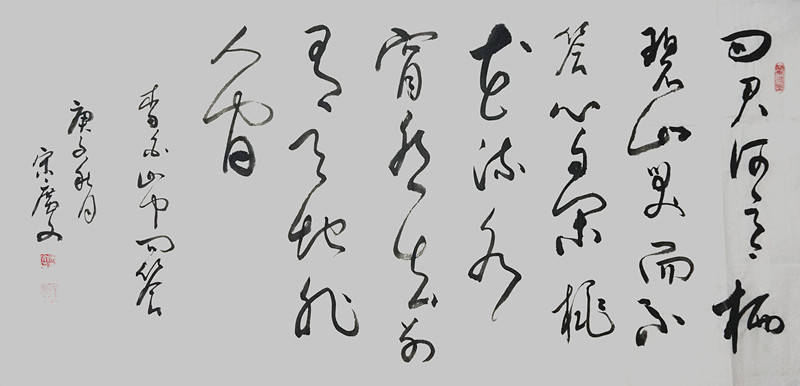 问君何意栖
碧山笑而不
答心自闲桃
花流水
窅然去别
有天地非
人间
李白山中问答
庚子秋月
宋广文